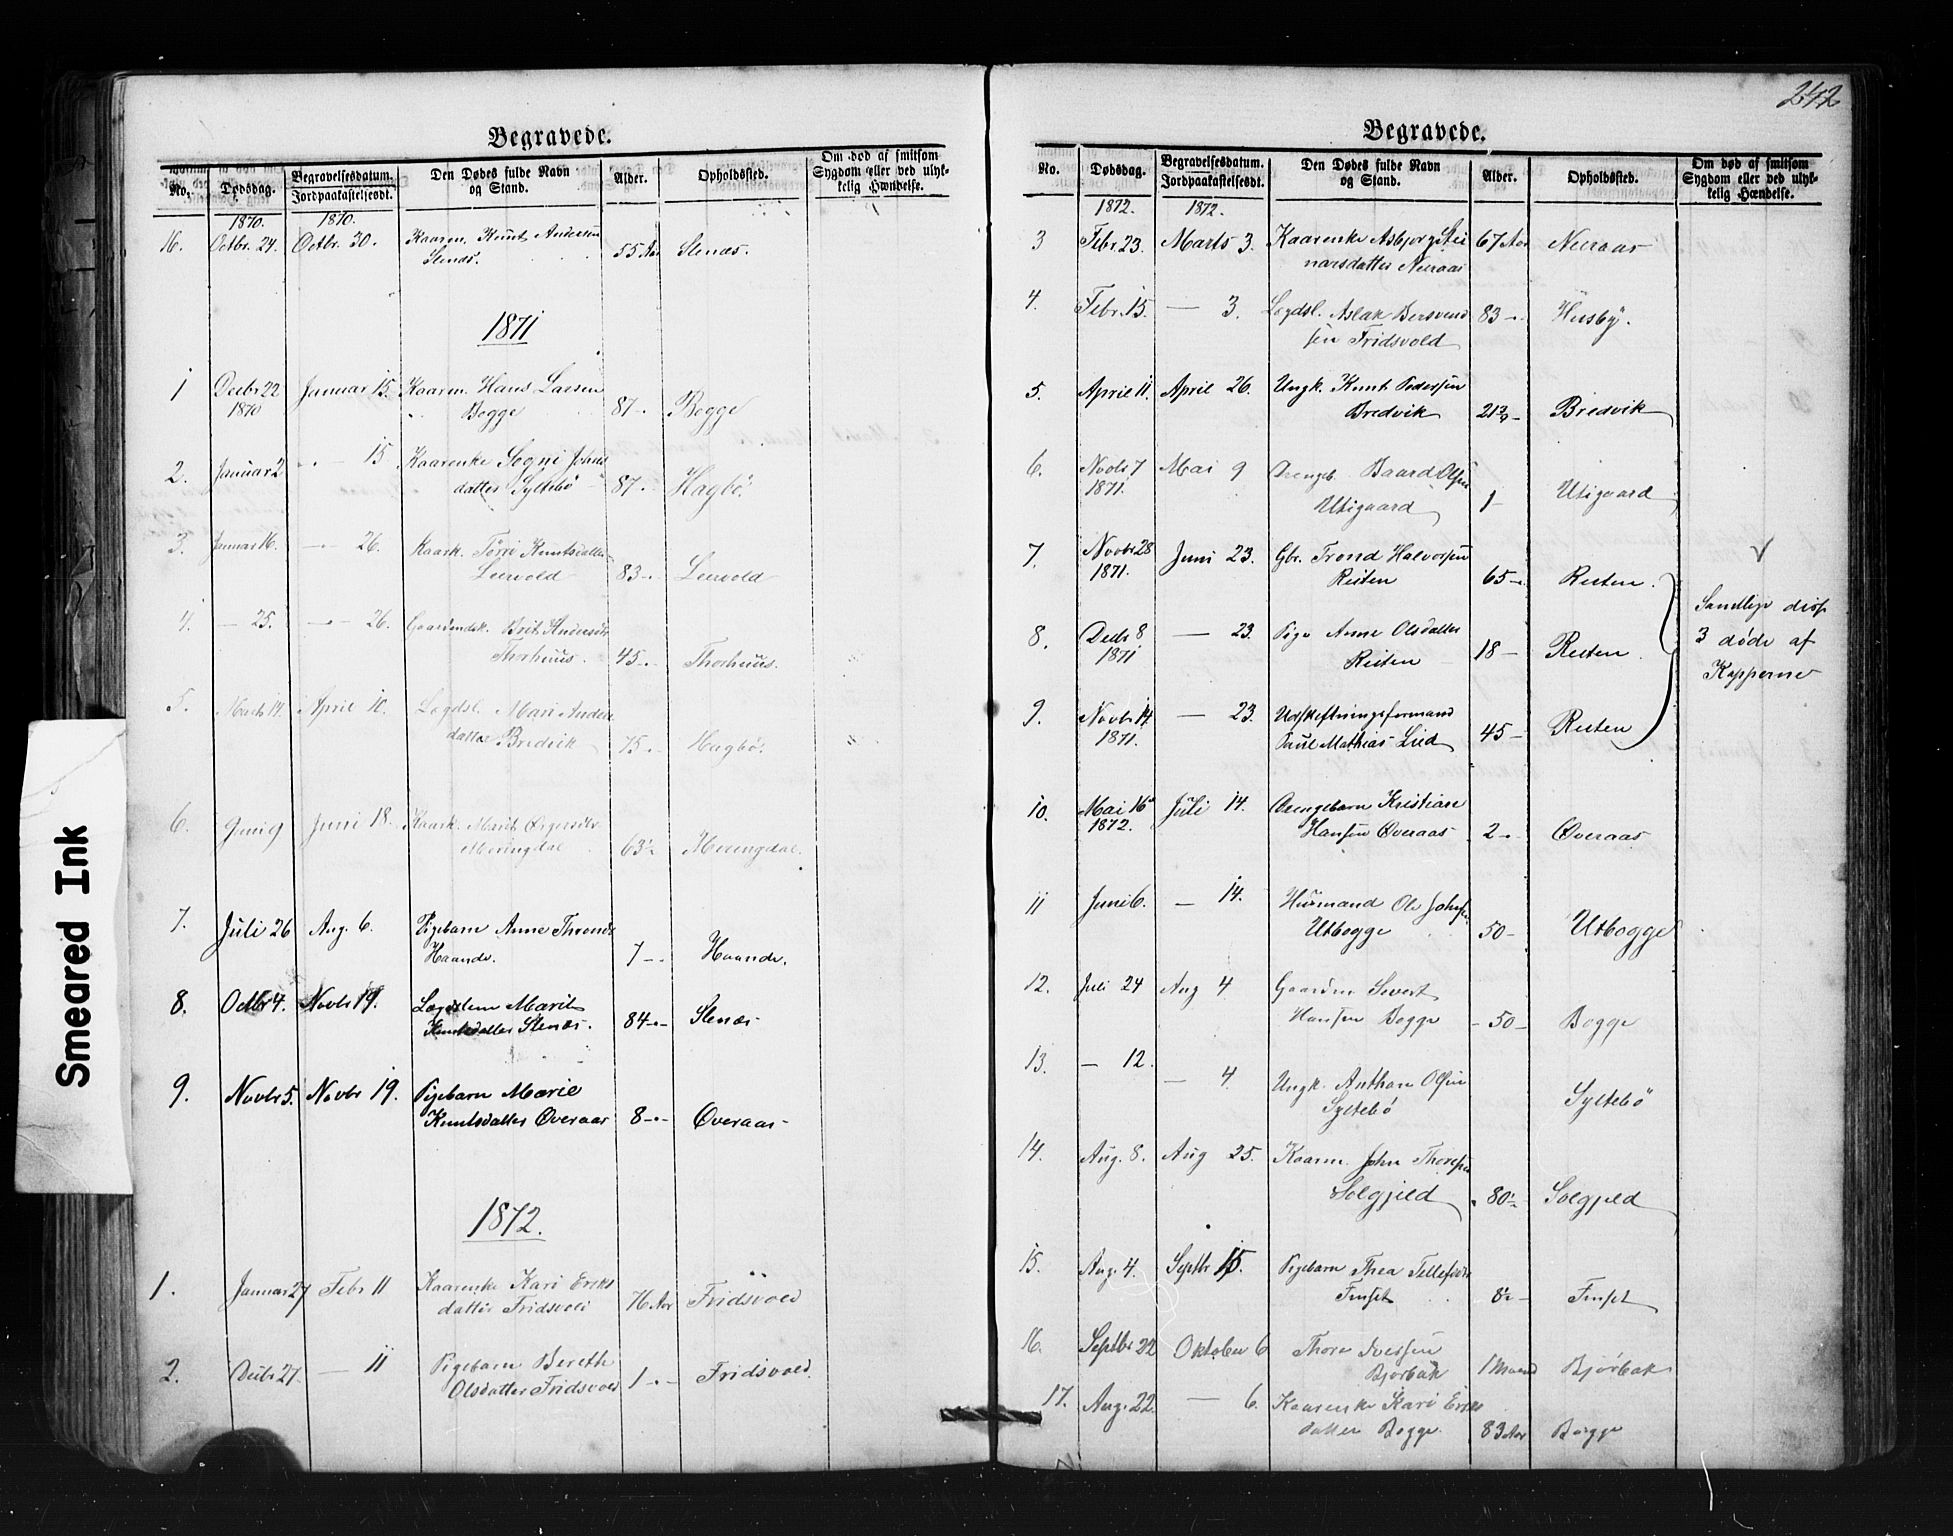 Begravede.
No. Dødsdag. Begravelsesdatum. Jordpaakastelsesdt. Den Dødes fulde Navn og Stand. Alder. Opholdssted. Om død af smitsom Sygdom eller ved ulykkelig Hændelse.
1870. 1870.
16. Octbr. 24. Octbr. 30. Kaarm. Knut Andersen 55 Aar Slenæs.
Slenæs.
1871
1 Decbr 22 Januar 15. Kaarm. Hans Larsen
1870 Bogge 87 Bogge
2. Januar 2 — 15 Kaarenke Sogni Johns
datter Syltebø 87 Hagbø.
3. Januar 16. — 26. Kaark. Tørri Knutsdatter
Leervold 83 Leervold
4. — 25. — 26. Gaardmdsk. Brit Andersdr
Thorhuus. 45 Thorhuus.
5. Marts 14. April 10. Logdsl. Mari Anders
datter Bredvik 75 Hagbø.
6. Juni 9 Juni 18. Kaark. Marit
Meringdal 63 Meringdal.
7. Juli 26 Aug. 6. Pigebarn Anne Thronds
Haande. 7 Haande.
8. Octbr 4. Novbr 19. Logdslem Marit
Knutsdatter Slenæs. 84 Slenæs
9. Novbr 5. Novbr 19. Pigebarn Marie
Knutsdatter Øveraas 8 Øveraas
1872.
1. Januar 27 Febr 11 Kaarenke Kari Eriks
datter Fridsvold 76 Aar Fridsvold
2. Decbr 27. — 11 Pigebarn Bereth
Olsdatter Fridsvold 1 Fridsvold.
Smeared Ink
242
Begravede.
No. Dødsdag. Begravelsesdatum. Jordpaakastelsesdt. Den Dødes fulde Navn og Stand. Alder. Opholdssted. Om død af smitsom Sygdom eller ved ulykkelig Hændelse.
1872. 1872.
3 Febr 23. Marts 3. Kaarenke Asbjorg Stei 67 Aar Neeraas
narsdatter Neeraas
4. Febr. 15. — 3. Logdsl. Aslak Bersvend 83 Huusby.
sen Fridsvold
5. April 11. April 26. Ungk. Knut Pedersen
Bredvik 21 Bredvik
6. Novbr 7 Mai 9 Drengeb. Baard Olsen
1871. Utigaard 1 Utigaard
7. Novbr 28 Juni 23. Gbr. Trond Halvorsen
1871. Reiten 65 Reiten.
8. Decbr 8 — 23. Pige Anne Olsdatter
1871 Reiten 18 Reiten
Samtlige disse
3 døde af
Kopperne
9. Novbr 14 — 23. Udskiftningsformand
1871. Paul Mathias Lied 45 Reiten
10. Mai 16 Juli 14. Drengebarn Kristian
1872. Hansen Øveraas 2 Øveraas
11 Juni 6. — 14. Husmand Ole Johnsen
Utbogge 50 Utbogge
12. Juli 24 Aug 4 Gaardm Sivert
Hansen Bogge 50 Bogge
13. — 12. — 4. Ungk. Anthon Olsen
Syltebø Syltebø
14. Aug. 8. Aug 25. Kaarm. John Thoresen
Solgjeld 80 Solgjeld
15. Aug. 4. Septbr 15. Pigebarn Thea Tellefsdr
Finset 8 Finset
16. Septbr 22 Oktober 6 Thore Iversen
Bjørbak 1 Maaned Bjørbak
17. Aug. 22. — 6. Kaarenke Kari Eriks
datter Bogge 83 Aar Bogge